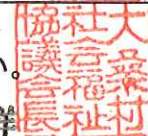 大桑村
社会福祉
協議会長
い。